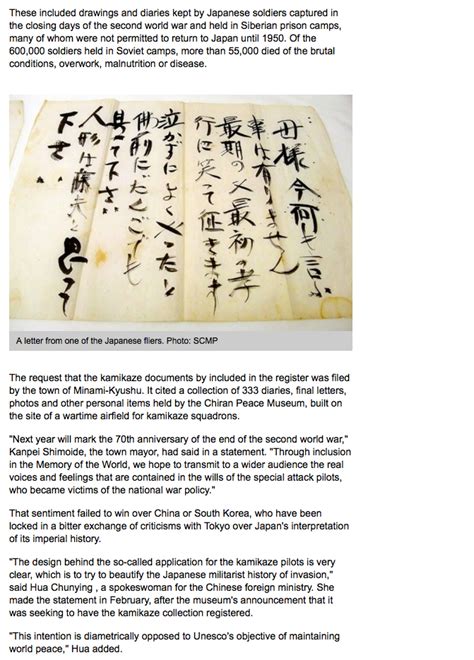 These included drawings and diaries kept by Japanese soldiers captured in
the closing days of the second world war and held in Siberian prison camps,
many of whom were not permitted to return to Japan until 1950. Of the
600,000 soldiers held in Soviet camps, more than 55,000 died of the brutal
conditions, overwork, malnutrition or disease.
母様今何も言ふ
事は有りません
最期の又最初の孝
行に笑って征きます
泣かずによくやったと
佛前にだんごでも
て下さい
人形は藤夫と思って
下さい
A letter from one of the Japanese fliers. Photo: SCMP
The request that the kamikaze documents by included in the register was filed
by the town of Minami-Kyushu. It cited a collection of 333 diaries, final letters,
photos and other personal items held by the Chiran Peace Museum, built on
the site of a wartime airfield for kamikaze squadrons.
"Next year will mark the 70th anniversary of the end of the second world war,"
Kanpei Shimoide, the town mayor, had said in a statement. "Through inclusion
in the Memory of the World, we hope to transmit to a wider audience the real
voices and feelings that are contained in the wills of the special attack pilots,
who became victims of the national war policy."
That sentiment failed to win over China or South Korea, who have been
locked in a bitter exchange of criticisms with Tokyo over Japan's interpretation
of its imperial history.
"The design behind the so-called application for the kamikaze pilots is very
clear, which is to try to beautify the Japanese militarist history of invasion,"
said Hua Chunying , a spokeswoman for the Chinese foreign ministry. She
made the statement in February, after the museum's announcement that it
was seeking to have the kamikaze collection registered.
"This intention is diametrically opposed to Unesco's objective of maintaining
world peace," Hua added.